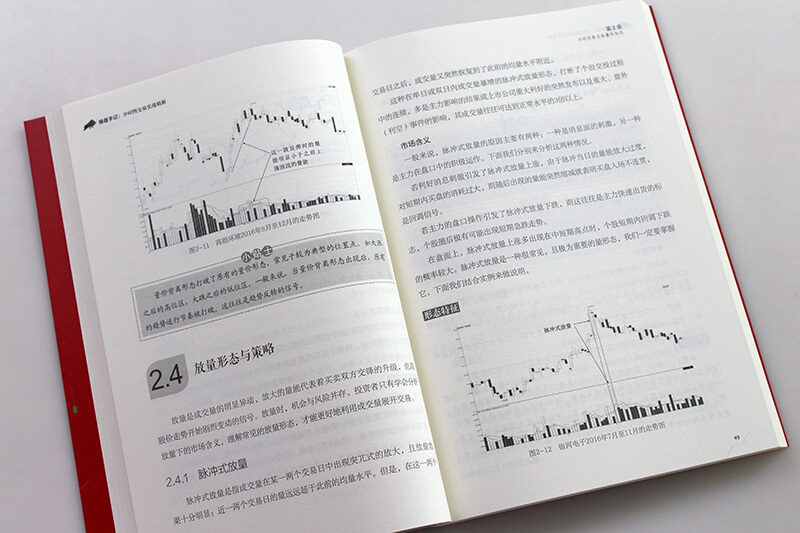 操盘手记：分时图交易实战精解
这一波反弹时的量
能明显小于之前上
涨波段的量能
图2-11 高能环境2016年8月至12月的走势图
小贴士
量价背离形态打破了原有的量价形态，常见于较为典型的位置点，如大涨
之后的高位区、大跌之后的低位区。一般来说，当量价背离形态出现后，原有
的趋势运行节奏被打破，这往往是趋势反转的信号。
2.4 放量形态与策略
放量是成交量的明显异动，放大的量能代表着买卖双方交锋的升级，也是
股价走势开始剧烈变动的信号。放量时，机会与风险并存。投资者只有学会分析
放量下的市场含义，理解常见的放量形态，才能更好地利用成交量展开交易。
2.4.1 脉冲式放量
脉冲式放量是指成交量在某一两个交易日中出现突兀式的放大，且放量效
果十分明显；近一两个交易日的量远远超于此前的均量水平。但是，在这一两个
第2章
交易日之后，成交量又突然恢复到了此前的均量水平附近。
这种在单日或双日内成交量暴增的脉冲式放量形态，打断了个股交投过程
中的连续，多是主力影响的结果或上市公司重大利好的突然发布以及重大、意外
（利空）事件的影响，其成交量往往可达到正常水平的3倍以上。
市场含义
一般来说，脉冲式放量的原因主要有两种：一种是消息面的刺激，另一种
是主力在盘口中的积极运作。下面我们分别来分析这两种情况。
若利好消息刺激引发了脉冲式放量上涨，由于脉冲当日的量能放大过度，
对短期内买盘的消耗过大，则随后出现的量能突然缩减就表明买盘入场不连贯，
是回调信号。
若主力的盘口操作引发了脉冲式放量下跌，则这往往是主力快速出货的标
志，个股随后极有可能出现短期急跌走势。
在盘面上，脉冲式放量上涨多出现在中短期高点时，个股短期内回调下跌
的概率较大。脉冲式放量是一种很常见，且极为重要的量形态，我们一定要掌握
它。下面我们结合实例来做说明。
形态特征
脉冲式放量
图2-12 银河电子2016年7月至11月的走势图
49